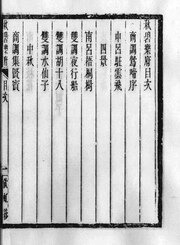 秋碧樂府目次
商調鶯啼序
中呂駐雲飛
四景
南呂梧桐樹
雙調夜行船
雙調胡十八
雙調水仙子
中秋
商調集賢賓